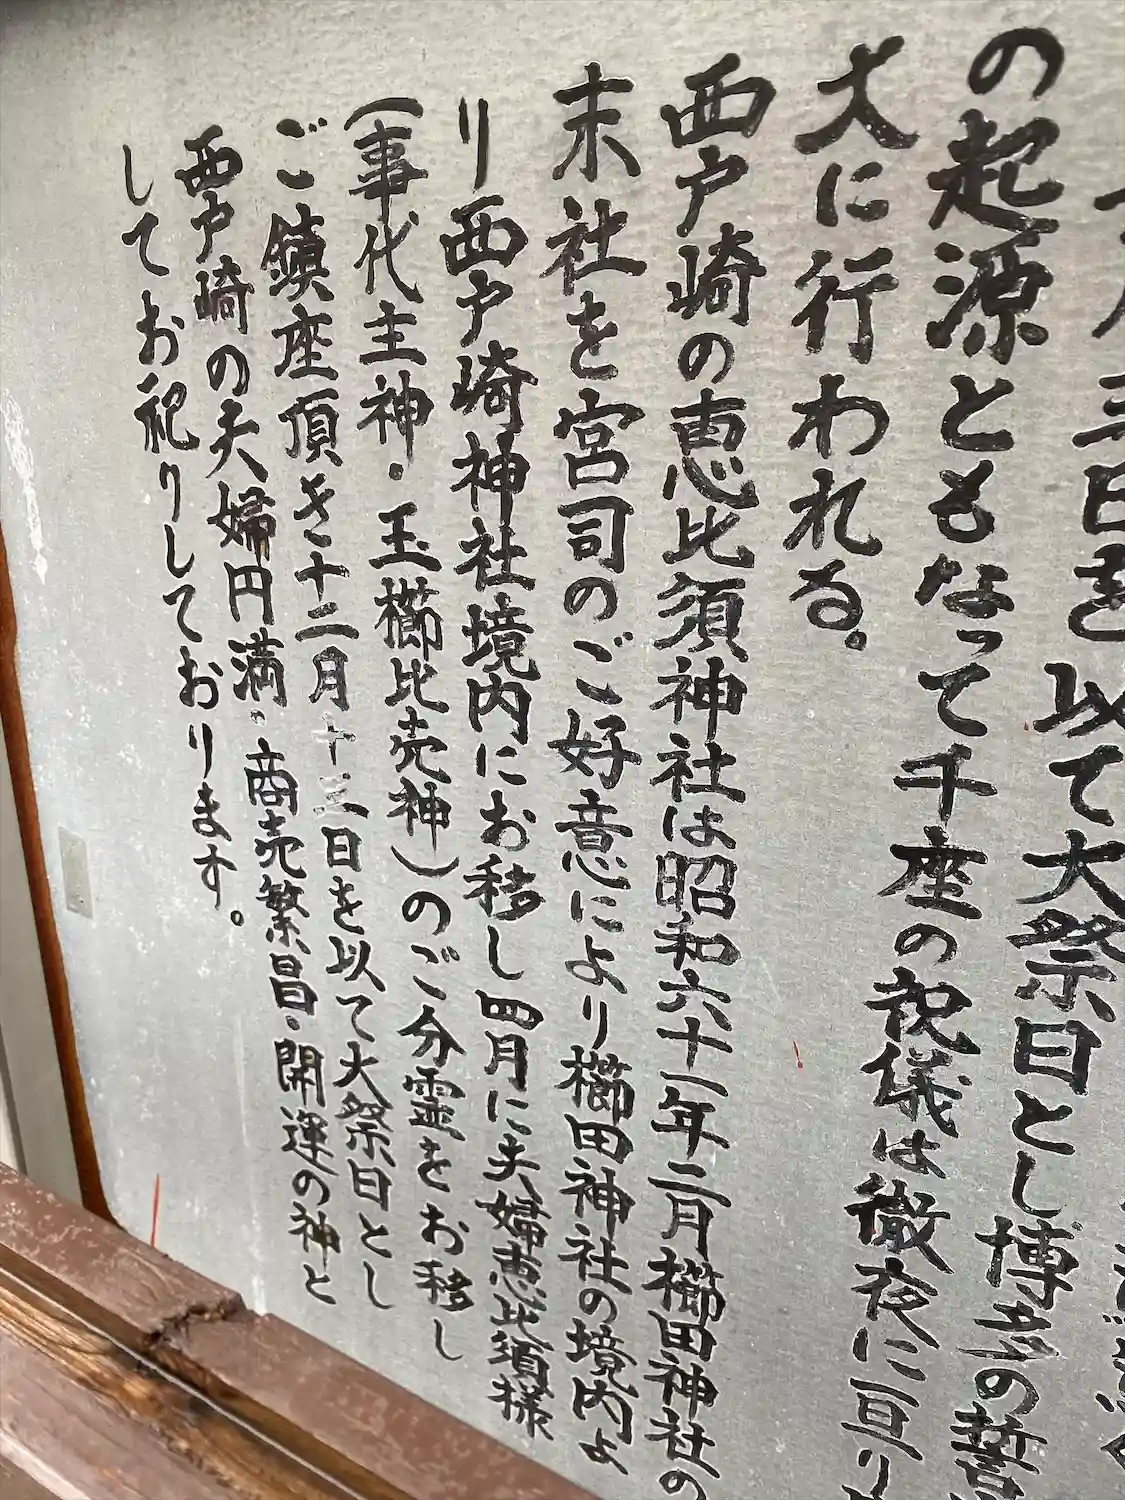 三日を以て大祭日とし博多の誓
の起源ともなって千座の祝儀は徹夜に亘り
大に行われる。
西戸崎の恵比須神社は昭和六十一年二月櫛田神社の
末社を宮司のご好意により櫛田神社の境内よ
り西戸崎神社境内にお移し四月に夫婦恵比須様
（事代主神・玉櫛比売神）のご分霊をお移し
ご鎮座頂き十二月十三日を以て大祭日とし
西戸崎の夫婦円満・商売繁昌・開運の神と
してお祀りしております。